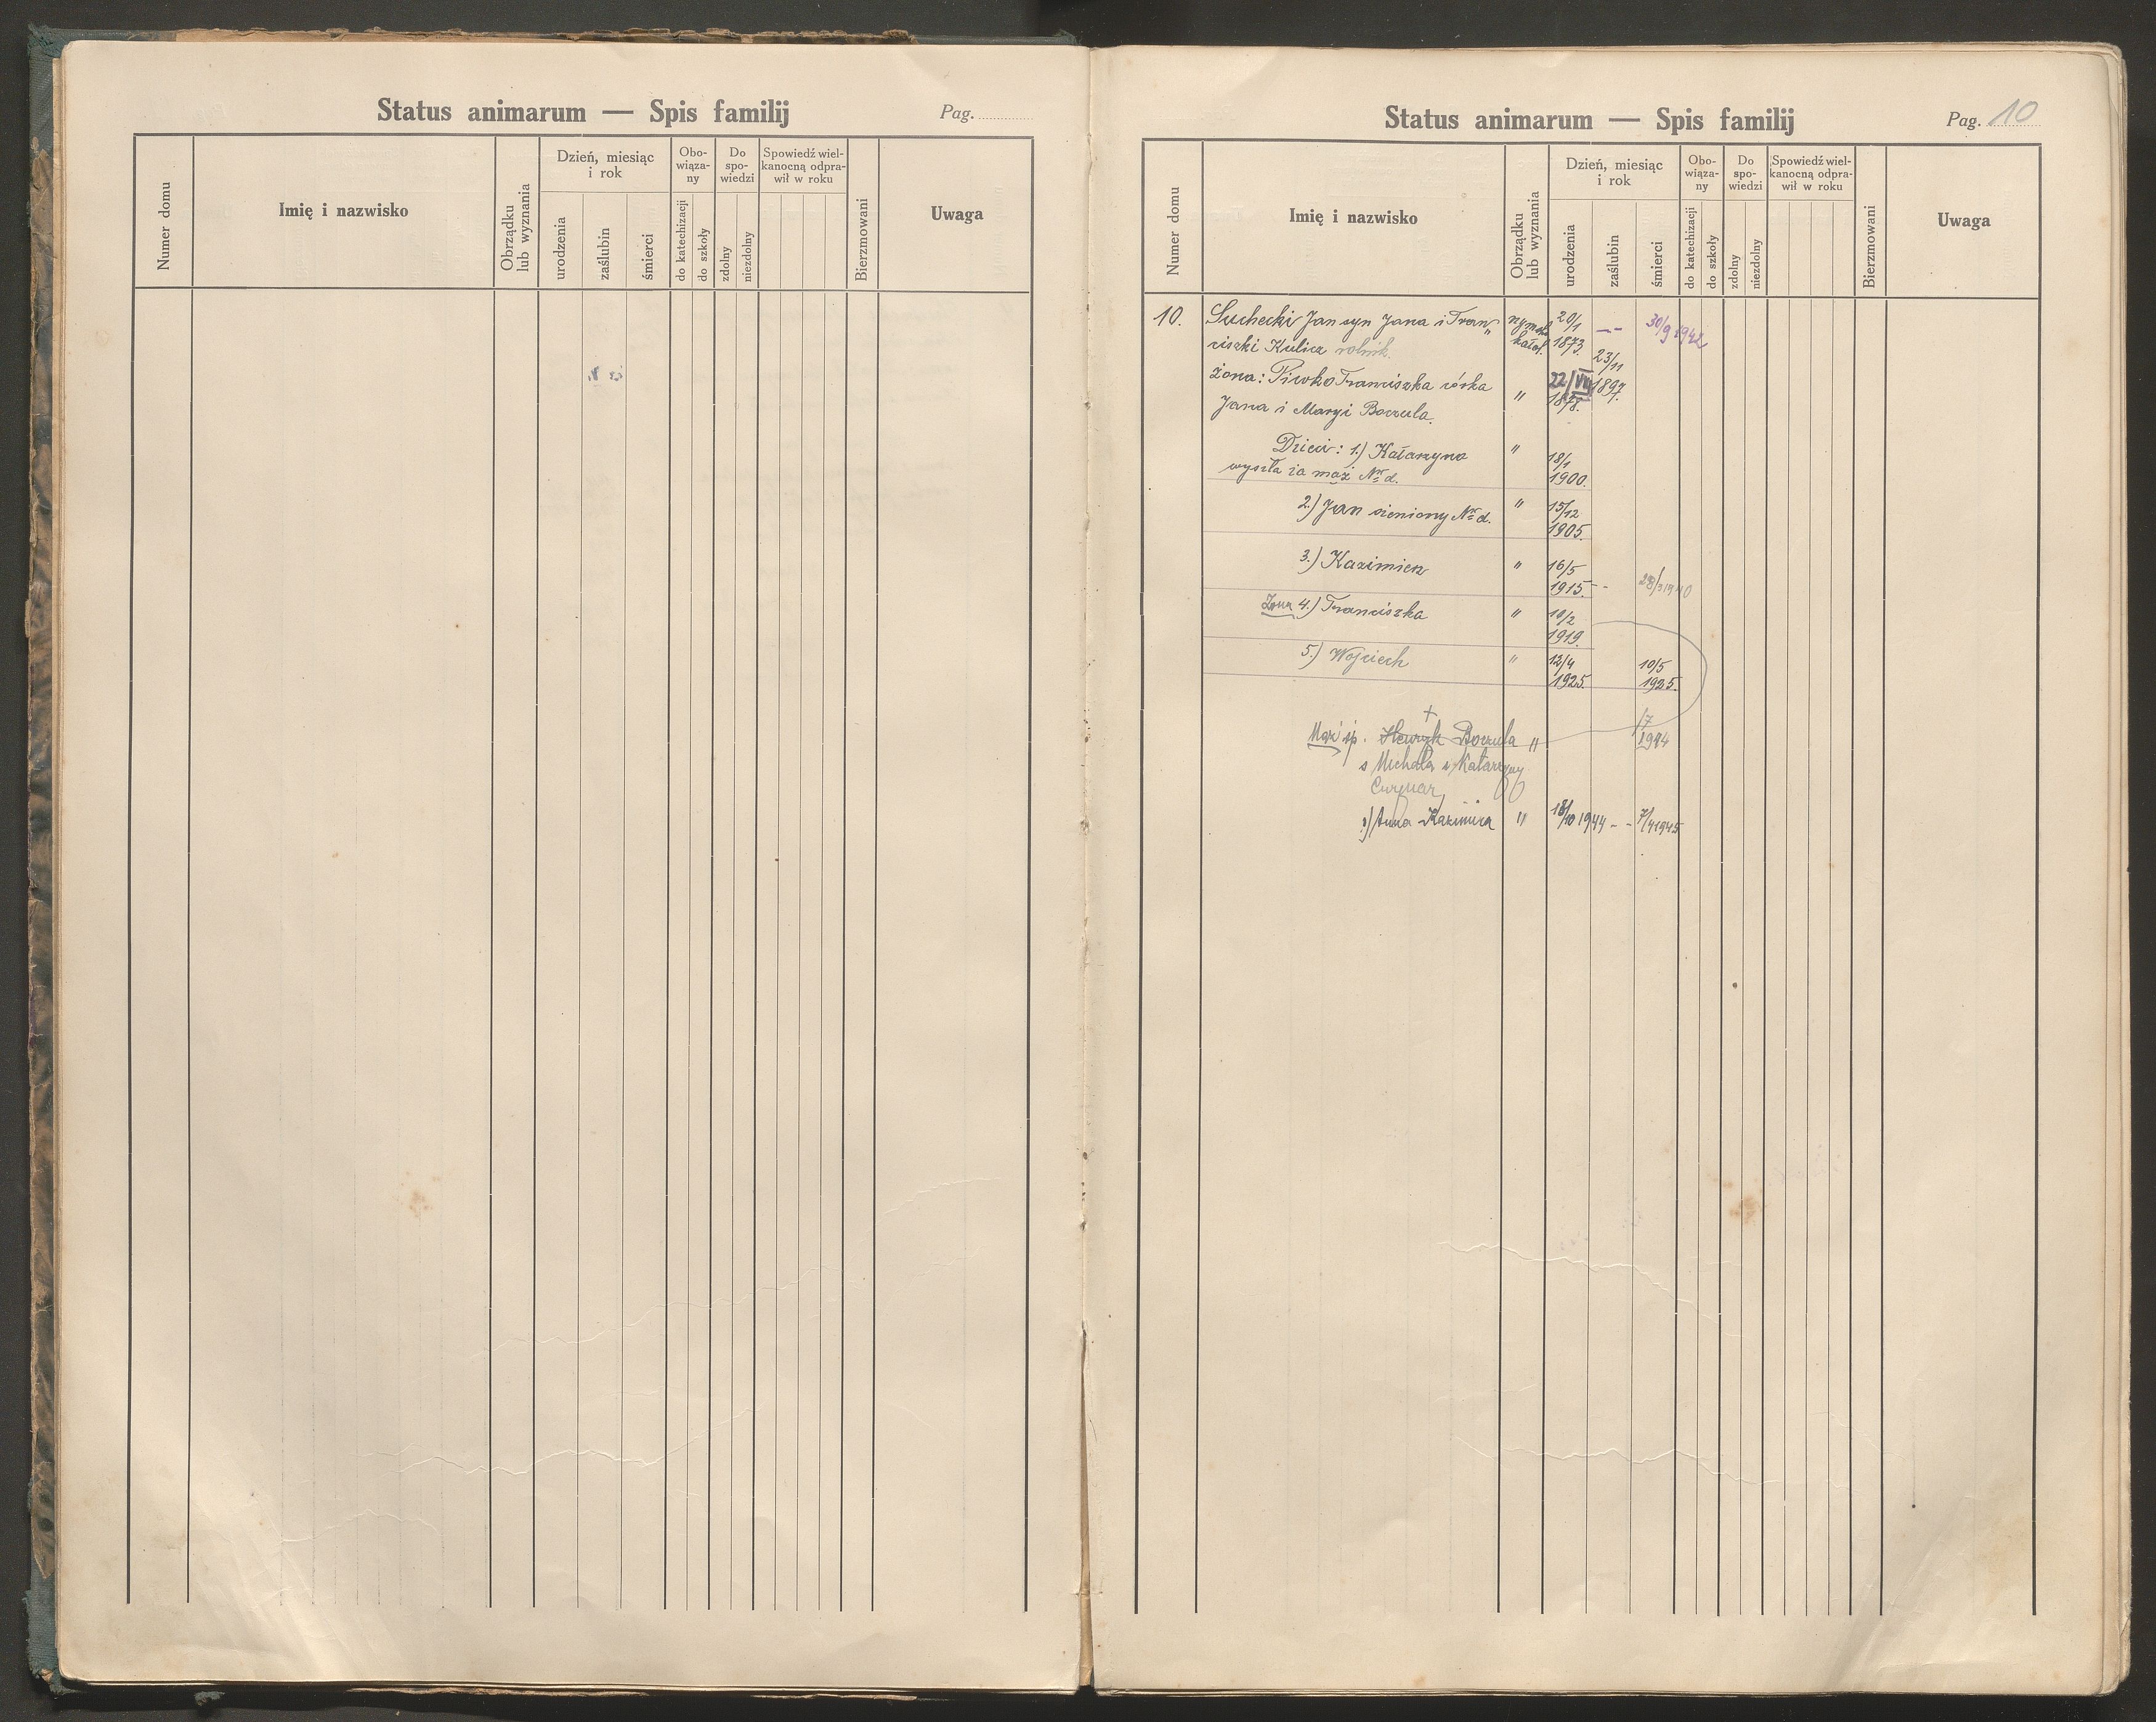 Status animarum — Spis familij
Pag.
Numer domu
Imię i nazwisko
Obrządku lub wyznania
Dzień, miesiąc i rok
urodzenia
zaślubin
śmierci
Obo-
wiąza-
ny
do katechizacji
do szkoły
Do
spo-
wiedzi
zdolny
niezdolny
Spowiedź wiel-
kanocną odpra-
wił w roku
Bierzmowani
Uwaga
Status animarum — Spis familij
Pag. 10
Numer domu
Imię i nazwisko
Obrządku lub wyznania
Dzień, miesiąc i rok
urodzenia
zaślubin
śmierci
Obo-
wiąza-
ny
do katechizacji
do szkoły
Do
spo-
wiedzi
zdolny
niezdolny
Spowiedź wiel-
kanocną odpra-
wił w roku
Bierzmowani
Uwaga
10. Suchecki Jan syn Jana i Fran„ rzymsk. 20/1 -- 30/9 1942
ciszki Kulicz rolnik. katol. 1873. 23/11
żona: Piwko Franciszka córka " 22/VII 1897.
Jana i Maryi Boczula. 1878.
Dzieci: 1.) Katarzyna " 18/1
wyszła za mąż Nr. d. 1900.
2.) Jan żeniony Nr. d. " 15/12
1905.
3.) Kazimierz " 16/5
1915. -- 28/3 1940
Żona 4.) Franciszka " 10/2
1919.
5.) Wojciech " 12/4 10/5
1925. 1925.
+ /7
Mąż śp. Henryk Boczula " 1944
s Michała i Katarzyny
1) Anna Kazimiera " 18/10 1944 -- 7/4 1945